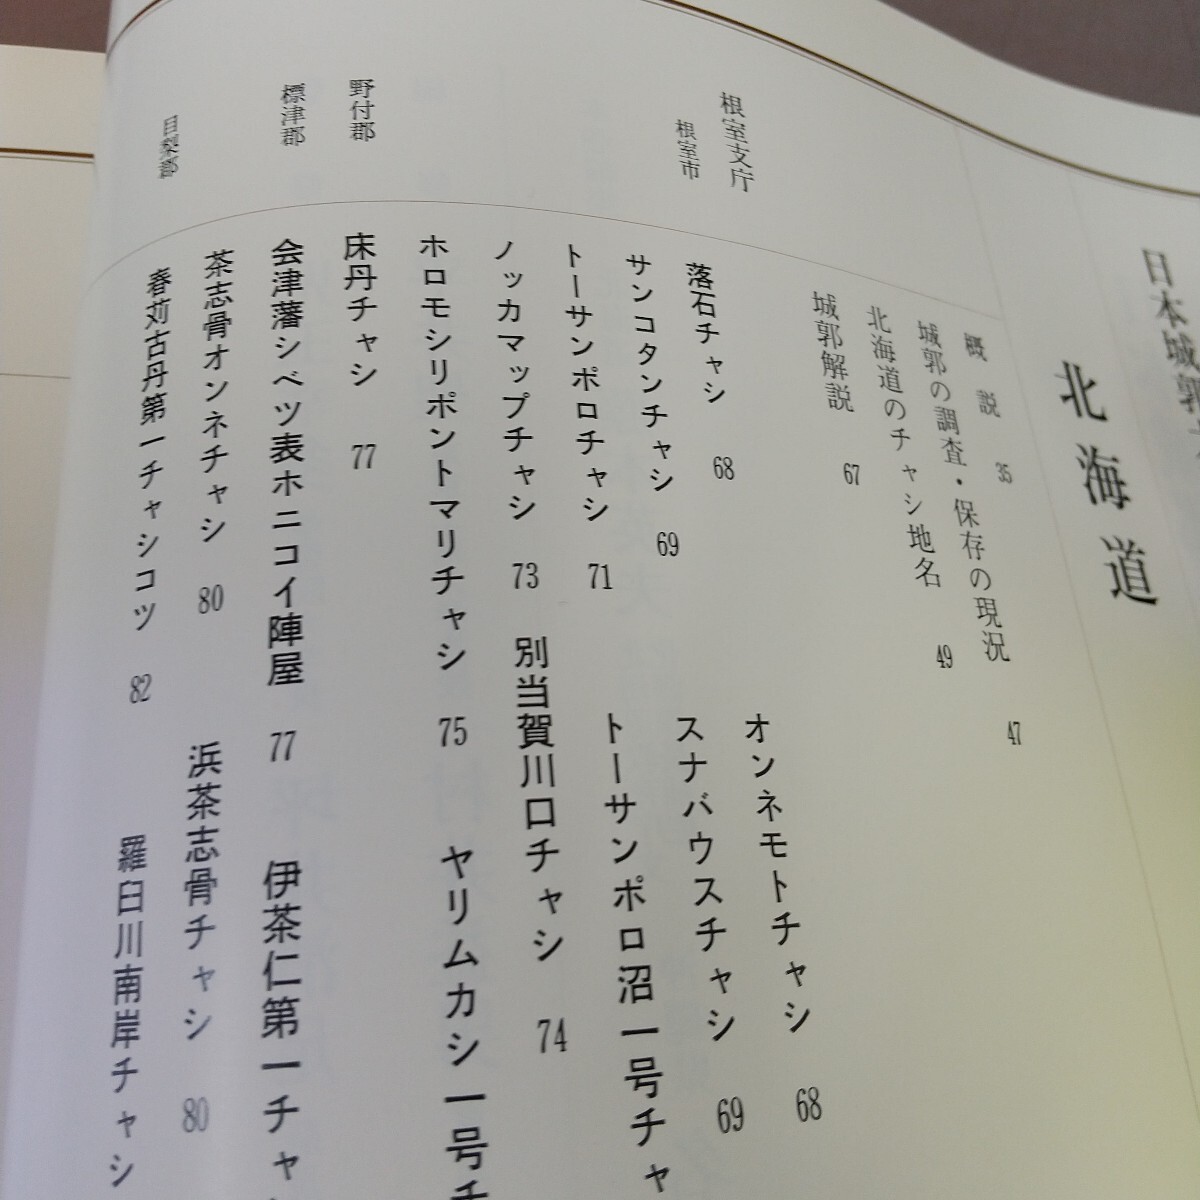 日本城郭
北海道
概説 35
城郭の調査・保存の現況 47
北海道のチャシ地名 49
城郭解説 67
根室支庁
根室市
落石チャシ 68
オンネモトチャシ 68
サンコタンチャシ 69
スナバウスチャシ 69
トーサンポロチャシ 71
トーサンポロ沼一号チャ
ノッカマップチャシ 73
別当賀川口チャシ 74
ホロモシリポントマリチャシ 75
ヤリムカシ一号チ
野付郡
床丹チャシ 77
標津郡
会津藩シベツ表ホニコイ陣屋 77
伊茶仁第一チャ
茶志骨オンネチャシ 80
浜茶志骨チャシ 80
目梨郡
春苅古丹第一チャシコツ 82
羅臼川南岸チャシ